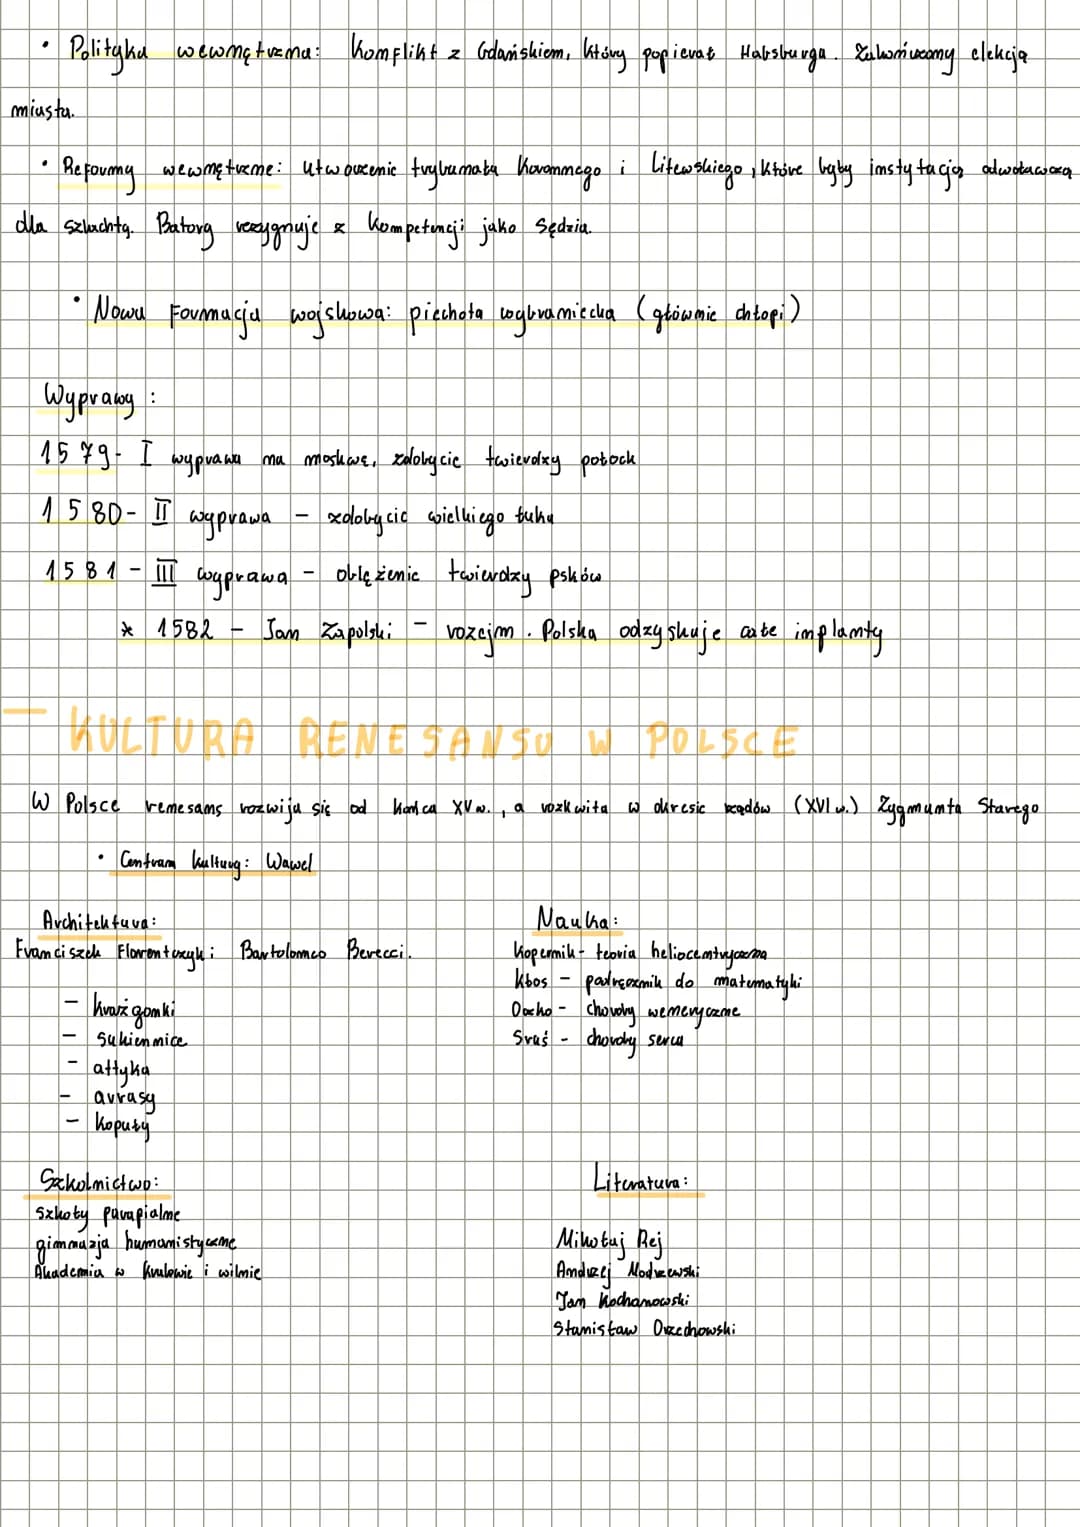 • Polityka wewnętrzna: konflikt z Gdańskiem, który popierał Habsburga. Zakończony elekcją
miasta.
• Reformy wewnętrzne: utworzenie trybunału koronnego i litewskiego, które były instytacją odwoławczą
dla szlachty. Batory rezygnuje z kompetencji jako sędzia.
• Nowa formacja wojskowa: piechota wybraniecka (głównie chłopi)
Wyprawy:
1579- I wyprawa na moskwę, zdobycie twierdzy połock
1580- II wyprawa - zdobycie wielkiego łuku
1581 - III wyprawa - oblężenie twierdzy psków
* 1582 - Jam Zapolski - rozejm. Polska odzyskuje całe implanty
- KULTURA RENESANSU W POLSCE
W Polsce renesans rozwija się od końca XV w., a rozkwita w okresie rządów (XVI w.) Zygmunta Starego
• Centrum kultury: Wawel
Architektura:
Franciszek Florentczyk i Bartolomeo Berecci.
- krużganki
- sukiennice
- attyka
- arrasy
- kopuły
Nauka:
Kopernik - teoria heliocentryczna
Kłos - podręcznik do matematyki
Ocho - choroby weneryczne
Sruś - choroby serca
Szkolnictwo:
szkoły parapialne
gimnazja humanistyczne
Akademia w Krakowie i wilnie
Literatura:
Mikołaj Rej
Andrzej Modrzewski
Jan Kochanowski
Stanisław Orzechowski